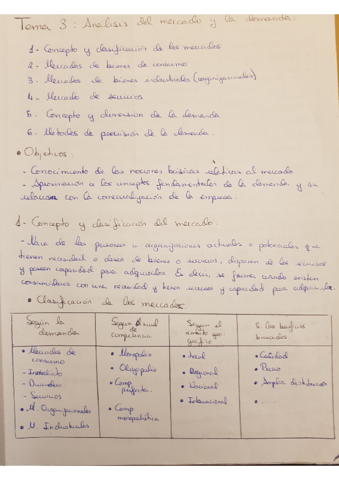 Tema 3: Análisis del mercado y la demanda.
1- Concepto y clasificación de los mercados
2- Mercados de bienes de consumo
3. Mercados de bienes industriales (organizacionales)
4- Mercado de servicios
5. Concepto y dimensión de la demanda
6. Métodos de previsión de la demanda.
• Objetivos:
- Conocimiento de las nociones básicas relativas al mercado
- Aproximación a los conceptos fundamentales de la demanda y su
relación con la comercialización de la empresa.
1- Concepto y clasificación del mercado.
- de las personas u organizaciones actuales o potenciales que
tienen necesidad o deseo de bienes o servicios, disponen de los recursos
y poseen capacidad para adquirirlos. Es decir, se forma cuando existen
consumidores con una necesidad y tienen recursos y capacidad para adquirirlo.
• Clasificación de los mercados
Según la demanda
• Mercados de consumo
- Inmediato
- Duradero
- Servicios
• M. Organizacionales
• M. Industriales
Según el nivel de competencia
• Monopolio
• Oligopolio
• Comp perfecta
• Comp monopolística
Según el ámbito geográfico
• Local
• Regional
• Nacional
• Internacional
S. los beneficios buscados
• Calidad
• Precio
• Amplia distribución
• ...